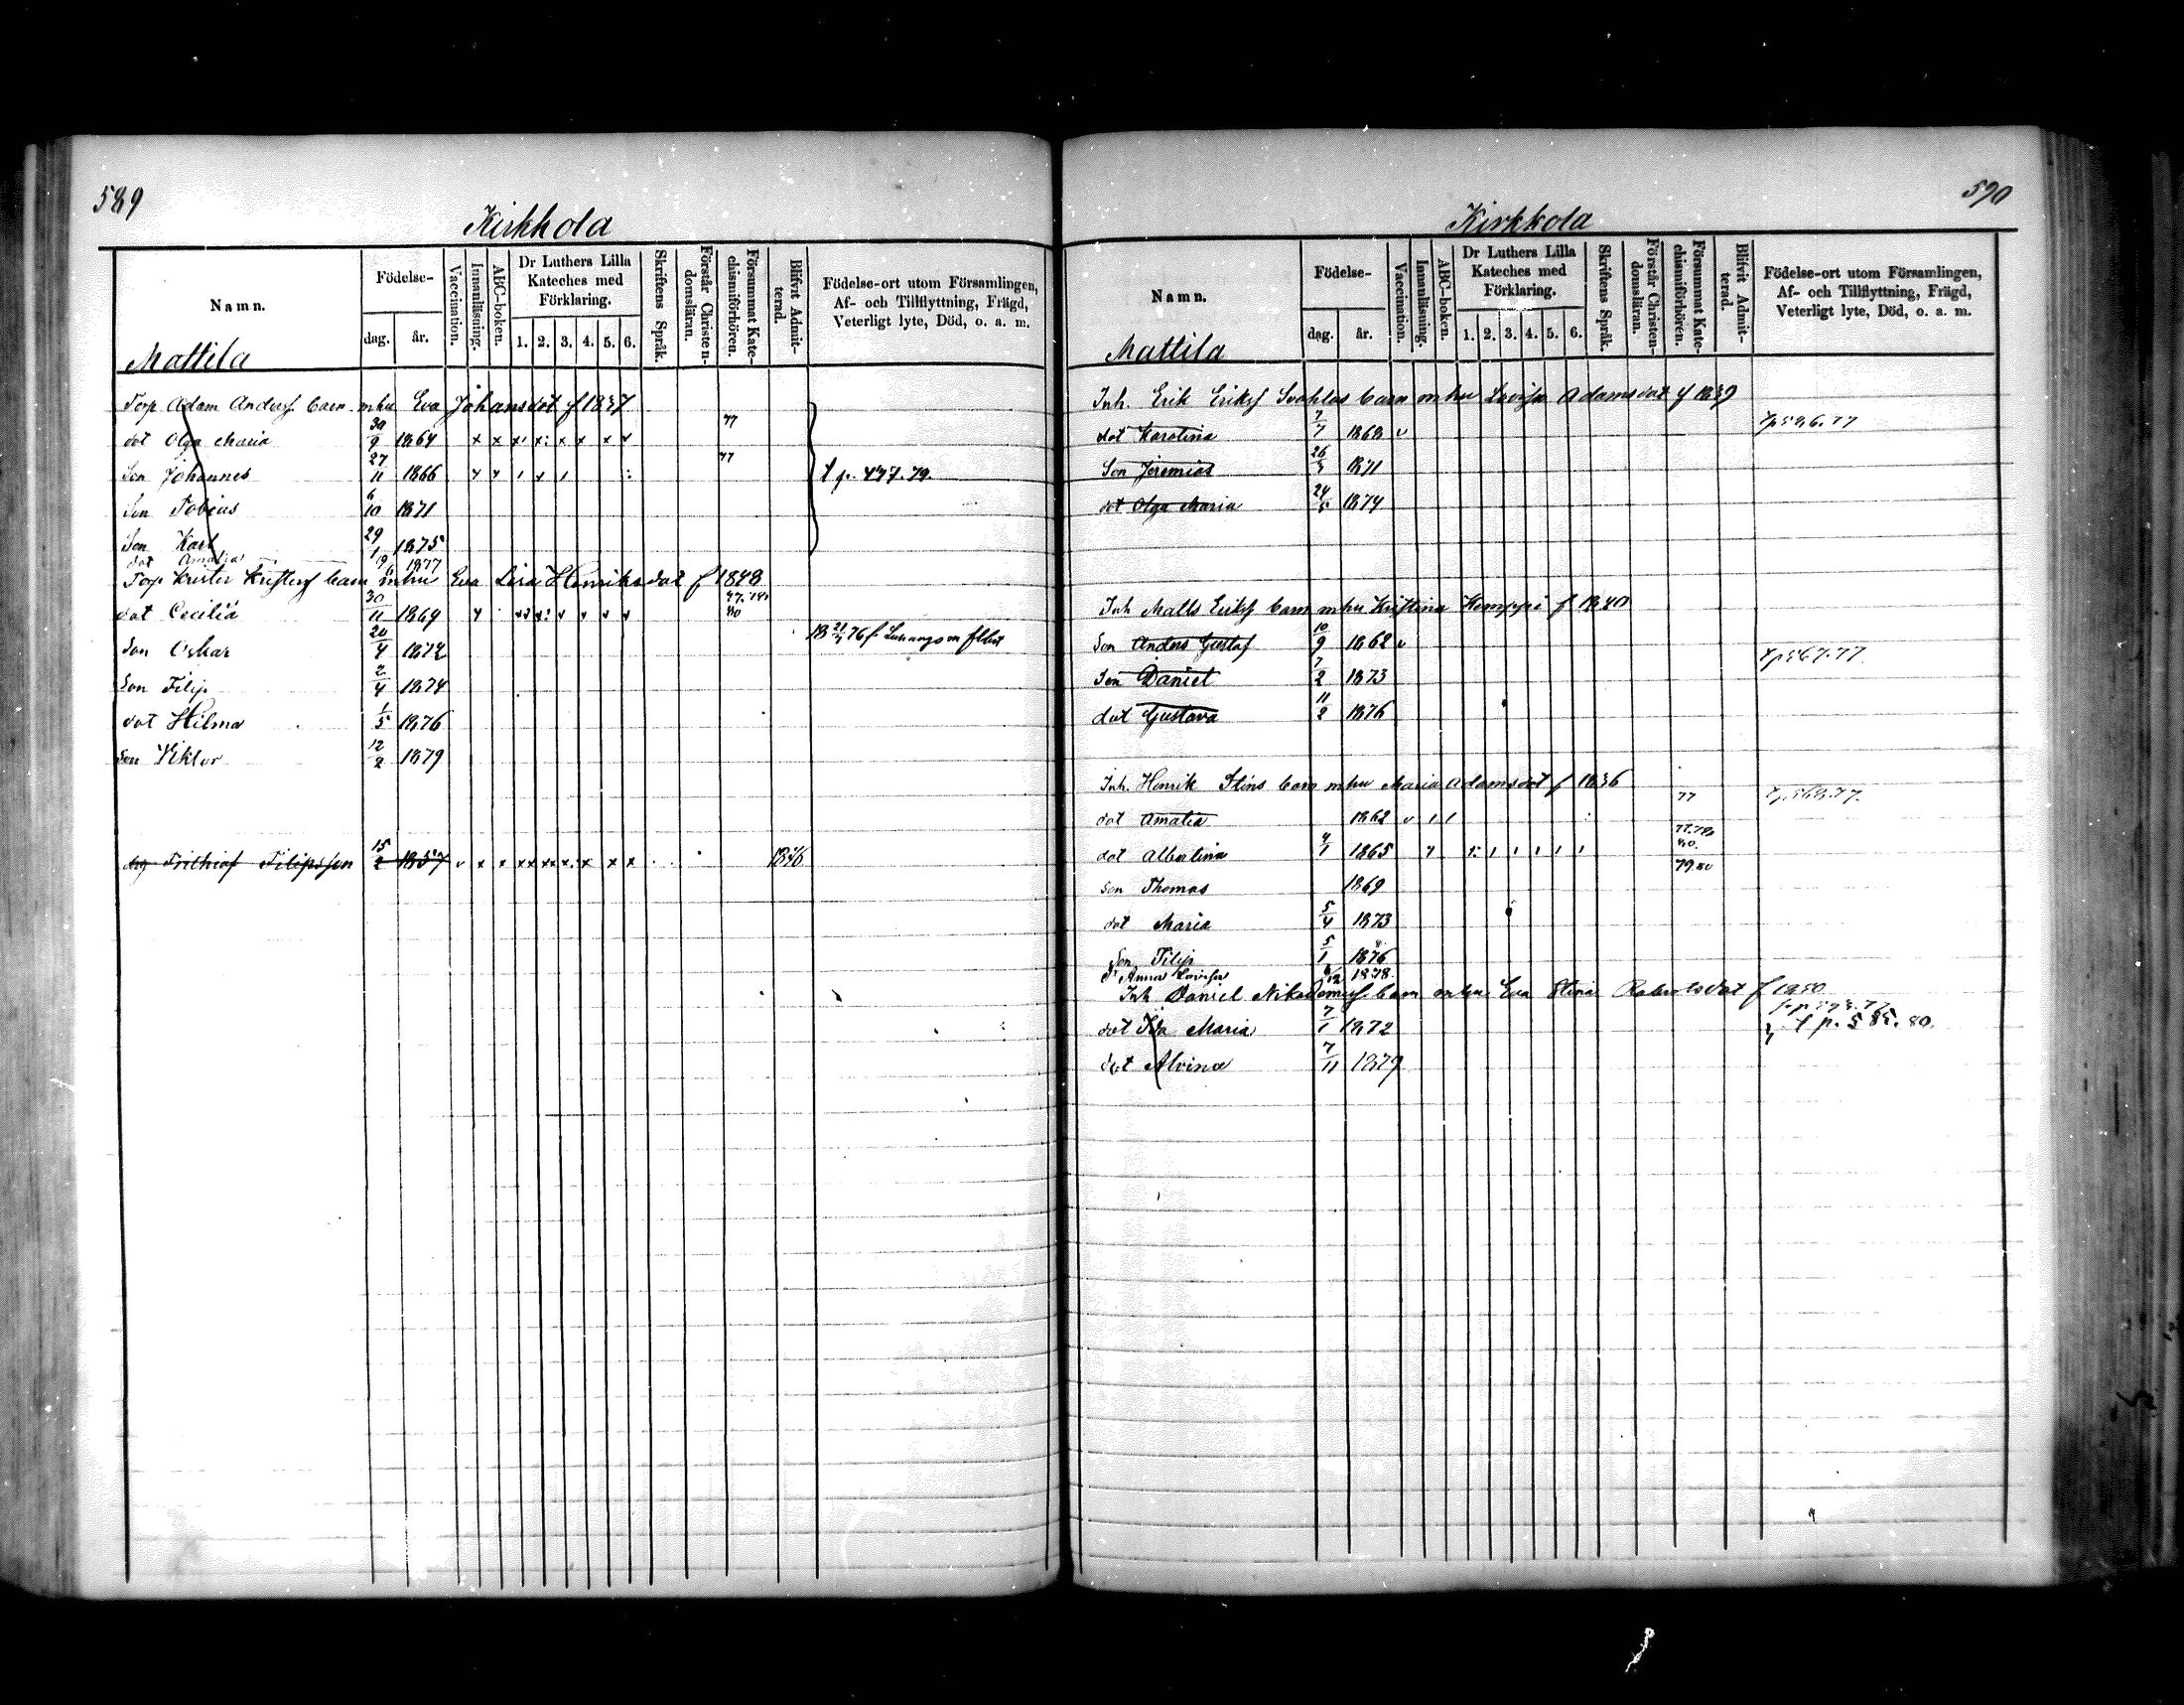 589
Kirkkola
Namn.
Födelse-
dag.
år.
Vaccination.
Innanläsning.
ABC-boken.
Dr Luthers Lilla
Kateches med
Förklaring.
1. 2. 3. 4. 5. 6.
Skriftens Språk.
Förstår Christen-
domsläran.
Försummat Kate-
chismiförhören.
Blifvit Admit-
terad.
Födelse-ort utom Församlingen,
Af- och Tillflyttning, Frägd,
Veterligt lyte, Död, o. a. m.
Mattila
Torp Adam Anderss. barn mhu Eva Johansdot f 1837
dot Olga Maria 30/9 1864 77
Son Johannes 27/11 1866 77 t p. 447.79.
Son Tobias 6/10 1871
Son Karl 29/1 1875
dot Amalia 19/6 1877
Torp Krister Kristerss barn mhu Eva Lisa Henriksdot f 1848
dot Cecilia 30/11 1869 80
Son Oskar 20/4 1872
Son Filip 2/4 1874
dot Hilma 1/5 1876
Son Viktor 12/2 1879
Frithiof Filipsson 15/2 1857 1876
590
Kirkkola
Namn.
Födelse-
dag.
år.
Vaccination.
Innanläsning.
ABC-boken.
Dr Luthers Lilla
Kateches med
Förklaring.
1. 2. 3. 4. 5. 6.
Skriftens Språk.
Förstår Christen-
domsläran.
Försummat Kate-
chismiförhören.
Blifvit Admit-
terad.
Födelse-ort utom Församlingen,
Af- och Tillflyttning, Frägd,
Veterligt lyte, Död, o. a. m.
Mattila
Inh. Erik Erikss barn mhu Lovisa Adamsdot f 1839
dot Karolina 7/7 1868
Son Jeremias 1871
dot Olga Maria 24/5 1874
Inh Matts Erikss barn mhu Kristina Hemppi f 1840
Son Anders Gustaf 10/9 1862 t p 567.77
Son Daniel 7/2 1873
dot Gustava 11/2 1876
Inh. Henrik Stins barn mhu Maria Adamsdot f 1836
dot Amalia 1862 77
dot Albertina 4/1 1865 77.78 80.
Son Thomas 1869 79.80
dot Maria 5/4 1873
Son Filip 5/1 1876
d. Anna Lovisa 6/12 1878
Inh Daniel Nikodemuss. barn mhu Eva Stina Robertsdot f 1850
dot Ida Maria 7/1 1872 t p. 585. 80.
dot Alvina 7/11 1879